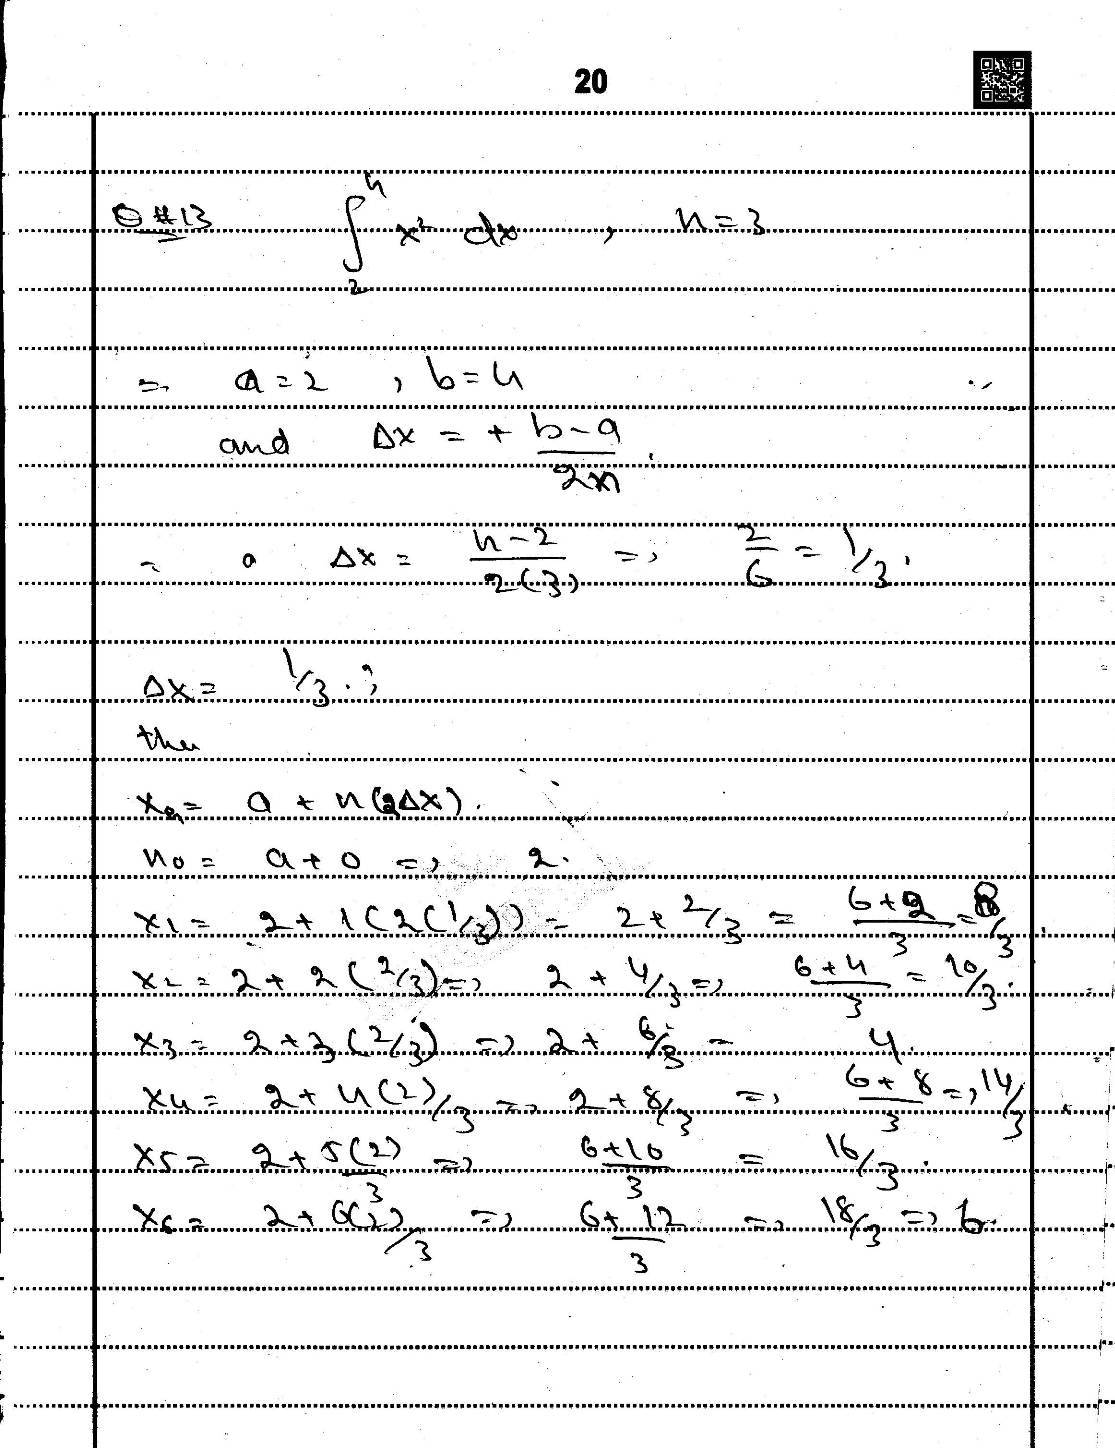 20
Q #13 ∫₂⁴ x² dx , n = 3
=> a = 2 , b = 4
and Δx = + b-a / 2n .
= a Δx = 4-2 / 2(3) => 2/6 = 1/3 .
Δx = 1/3 . ;
the
xn = a + n(2Δx) .
n0 = a + 0 => 2 .
x1 = 2 + 1(2(1/3)) = 2 + 2/3 = 6+2 / 3 = 8/3 .
x2 = 2 + 2(2/3) => 2 + 4/3 => 6+4 / 3 = 10/3 .
x3 = 2+3(2/3) => 2 + 6/3 = 4 .
x4 = 2 + 4(2)/3 => 2 + 8/3 => 6+8 / 3 => 14/3 .
x5 = 2 + 5(2) / 3 => 6+10 / 3 = 16/3 .
x6 = 2 + 6(2)/3 => 6+12 / 3 => 18/3 => 6 .